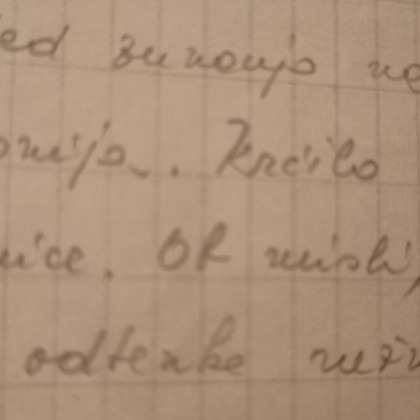 ed zunanjo ne
nijo. Krčilo
nice. Ob misli,
odtenke